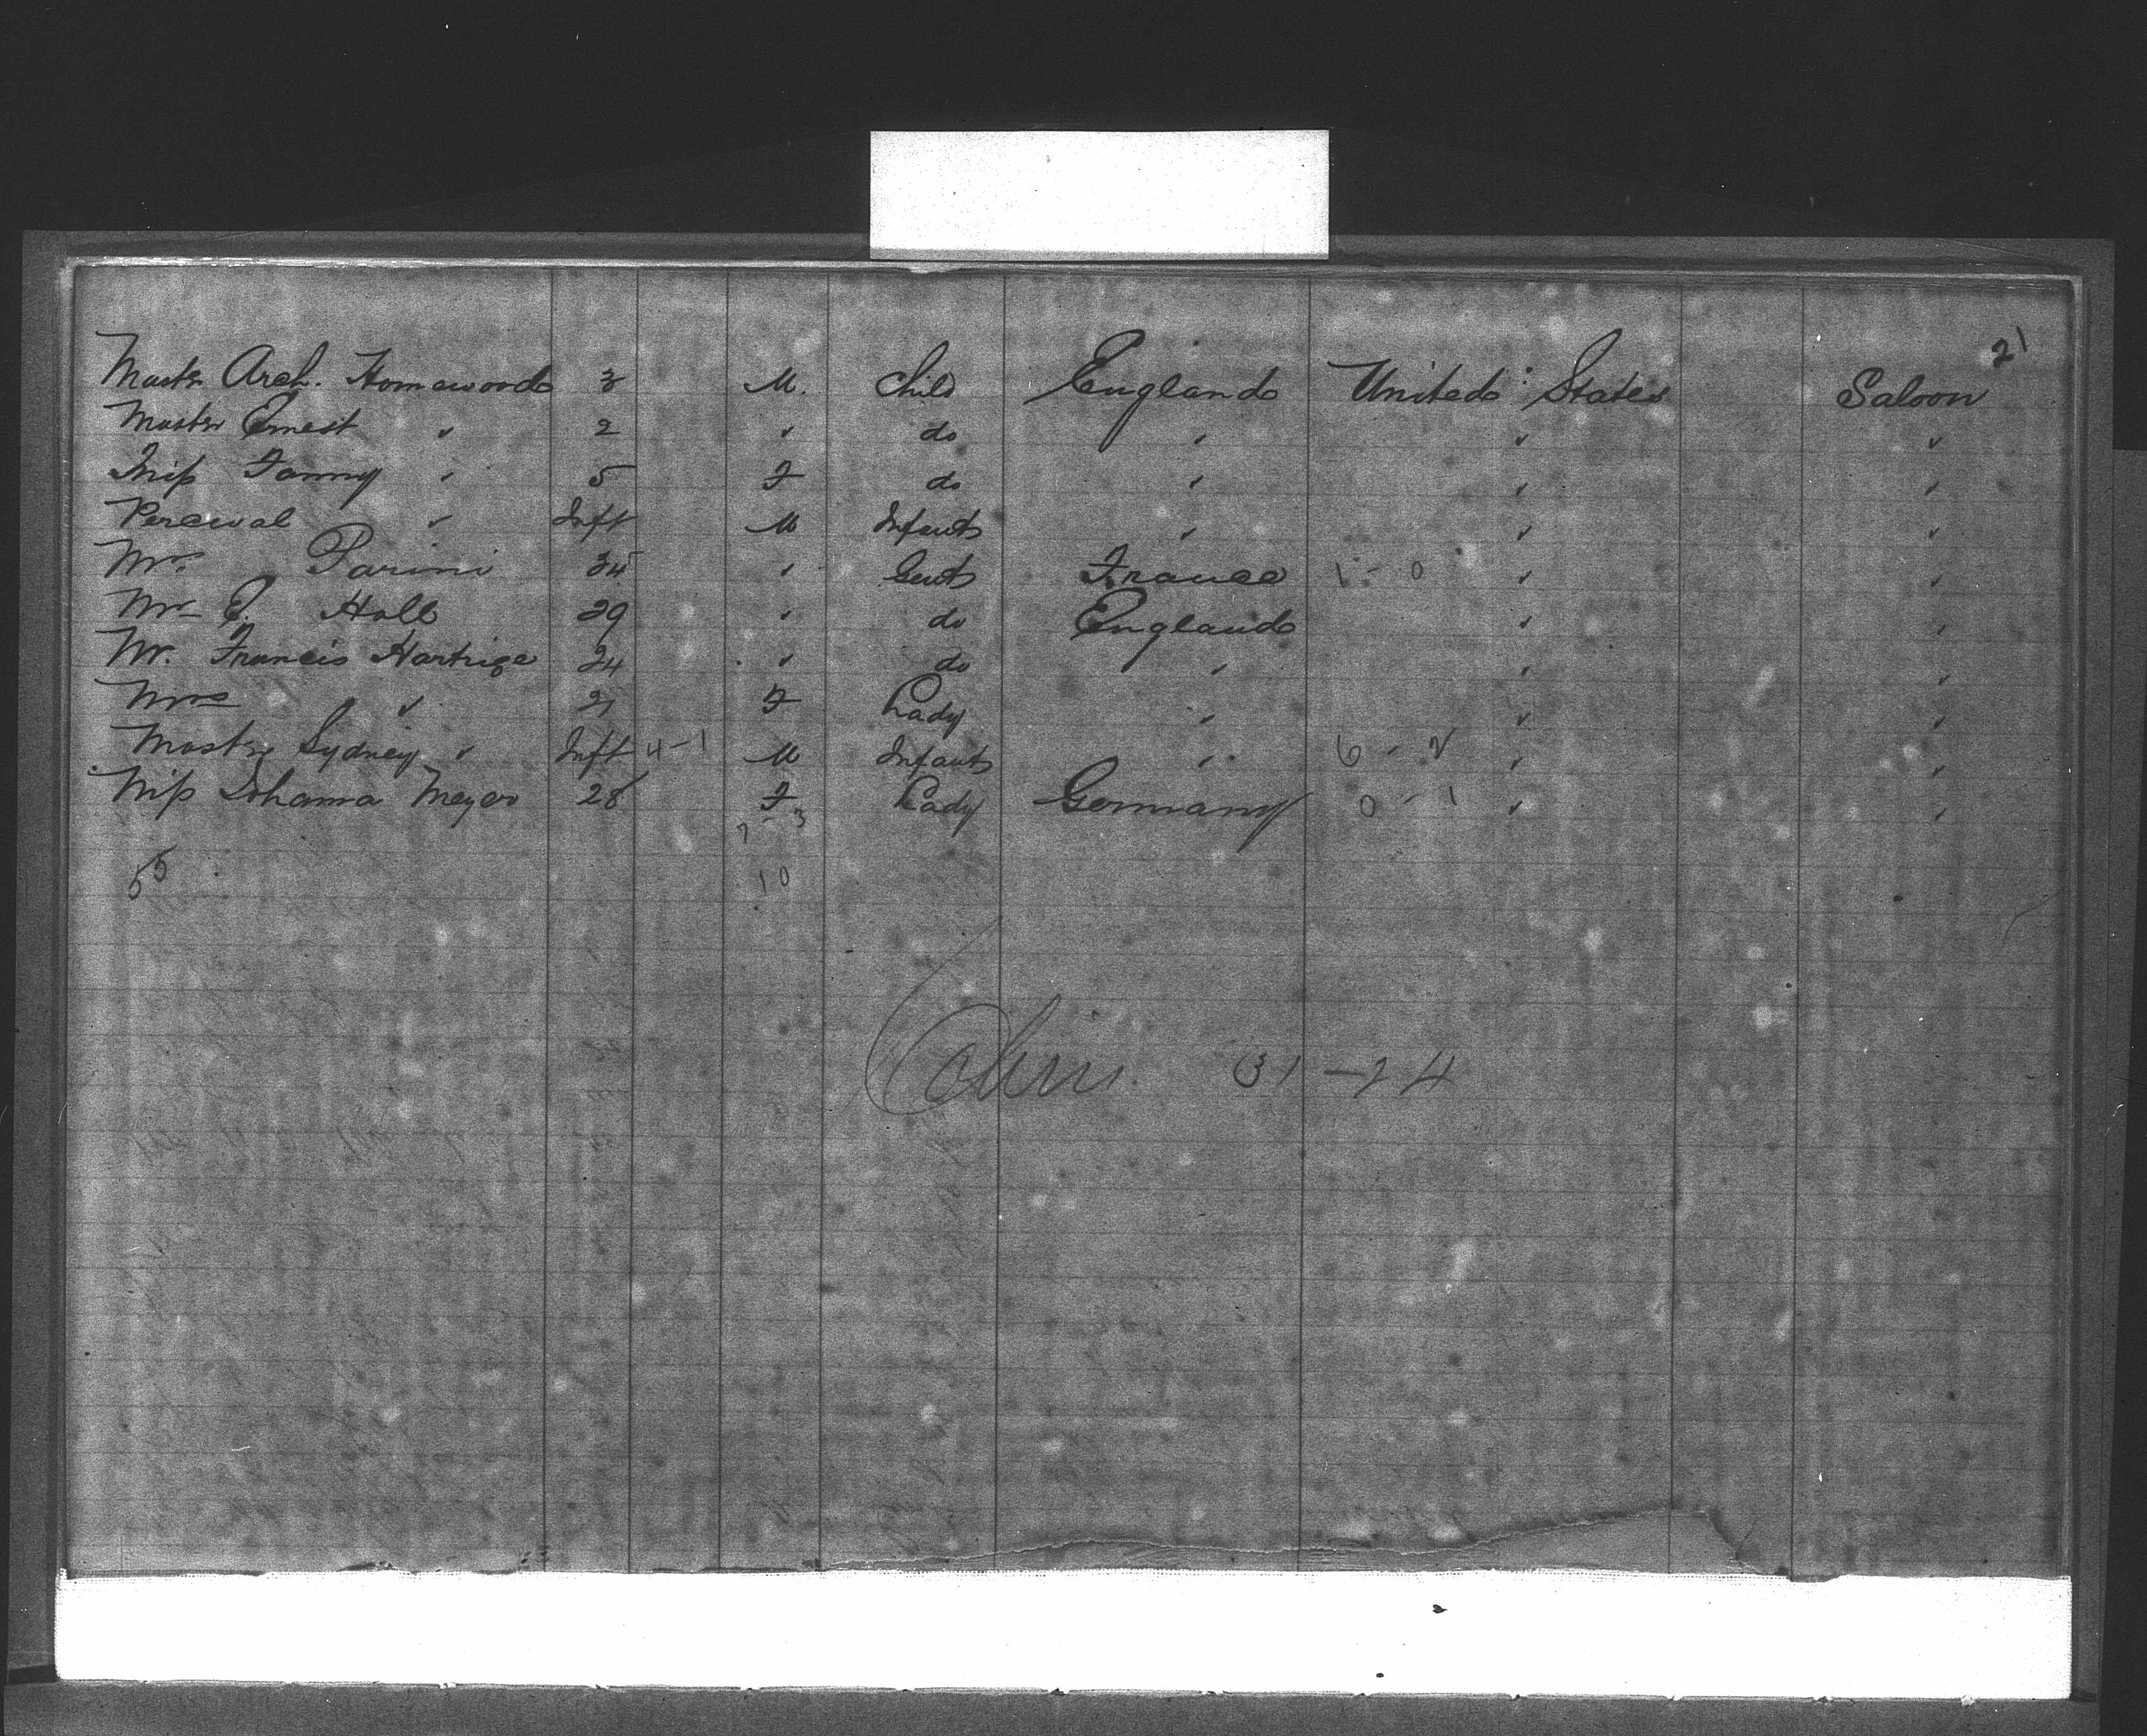 21
Mastr. Arch. Homewood 3 M. Child England United States Saloon
Mastr Ernest " 2 " do " " "
Miss Fanny " 5 F do " " "
Percival " Inft M Infant " " "
Mr. Parini 34 " Gent France 1 - 0 " "
Mr E. Hall 29 " do England " "
Mr. Francis Hartrige 24 " do " " "
Mrs " 21 F Lady " " "
Mastr Sydney " Inft 4-1 M Infant " 6 - 2 " "
Miss Johanna Meyer 28 F Lady Germany 0 - 1 " "
7 - 3
55 10
Cabin 31 - 24